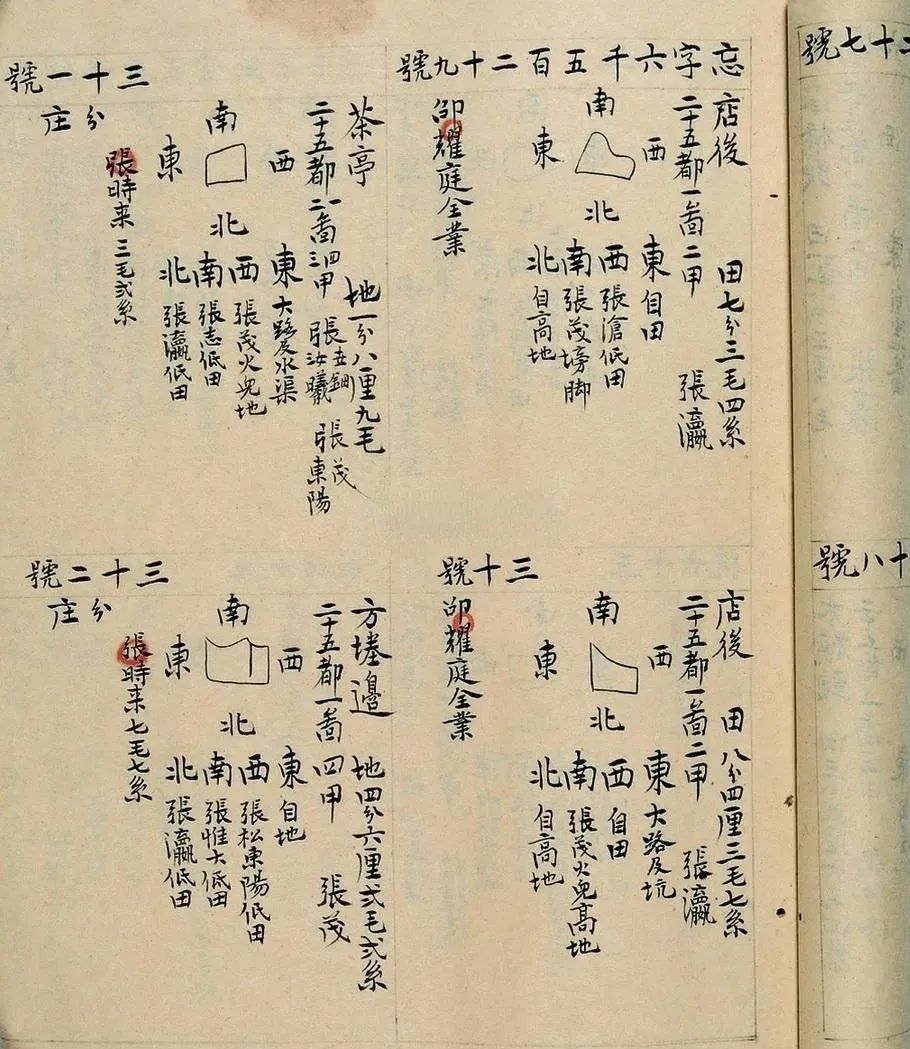 忘字六千五百二十九號
店後 田七分三毛四系
二十五都一啚二甲 張瀛
南
西
東
北
東自田
西張滄低田
南張茂塝脚
北自高地
卲耀庭全業
三十號
店後 田八分四厘三毛七系
二十五都一啚二甲 張瀛
南
西
東
北
東大路及坑
西自田
南張茂火兒高地
北自高地
卲耀庭全業
三十一號
茶亭 地一分八厘九毛
二十五都二一啚三四甲 張五鈿 張汝曦 張茂 張東陽
南
西
東
北
東大路及水渠
西張茂火兒地
南張志低田
北張瀛低田
分庄
張時来三毛弍系
三十二號
方墣邉 地四分六厘弍毛弍系
二十五都一啚四甲 張茂
南
西
東
北
東自地
西張松東陽低田
南張惟大低田
北張瀛低田
分庄
張時来七毛七系
二十七號
十八號